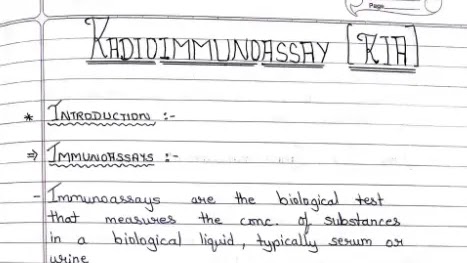 Page
RADIOIMMUNOASSAY [RIA]
* INTRODUCTION :-
⇒ IMMUNOASSAYS :-
- Immunoassays are the biological test
that measures the conc. of substances
in a biological liquid, typically serum or
urine